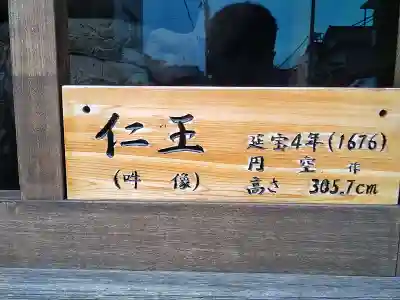 仁王
(吽像)
延宝4年(1676)
円空作
高さ 305.7cm